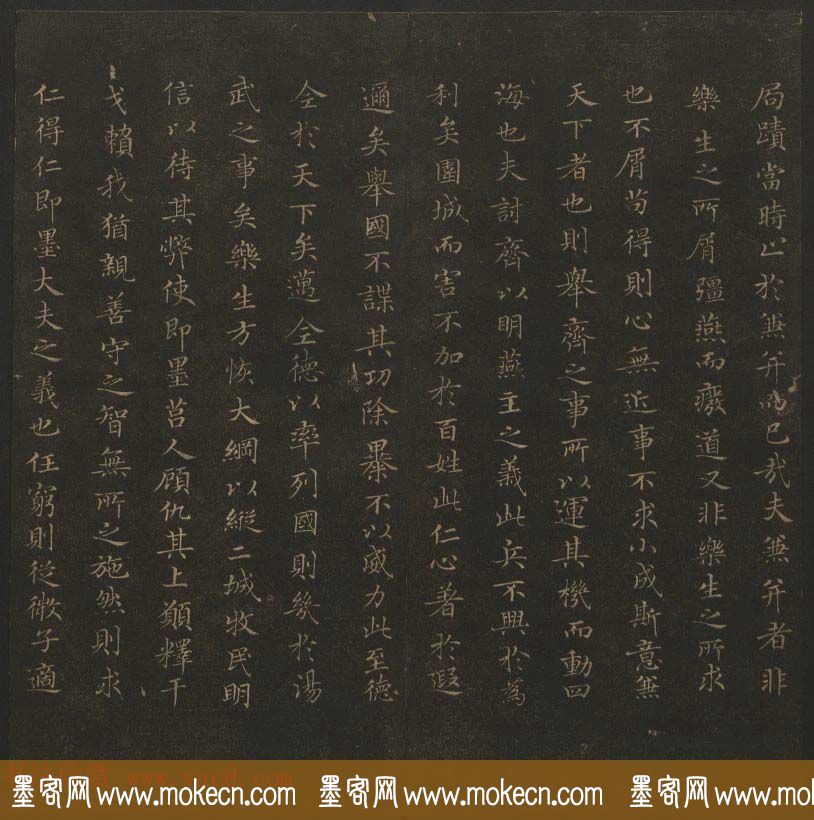 局蹟當時止於兼并而已哉夫兼并者非
樂生之所屑彊燕而癈道又非樂生之所求
也不屑茍得則心無近事不求小成斯意兼
天下者也則舉齊之事所以運其機而動四
海也夫討齊以明燕主之義此兵不興於為
利矣圍城而害不加於百姓此仁心著於遐
邇矣舉國不謀其功除暴不以威力此至德
全於天下矣邁全德以率列國則幾於湯
武之事矣樂生方恢大綱以縱二城牧民明
信以待其弊使即墨莒人顧仇其上願釋干
戈賴我猶親善守之智無所之施然則求
仁得仁即墨大夫之義也任窮則從微子適
墨客网 www.mokecn.com 墨客网 www.mokecn.com 墨客网 www.mokecn.com